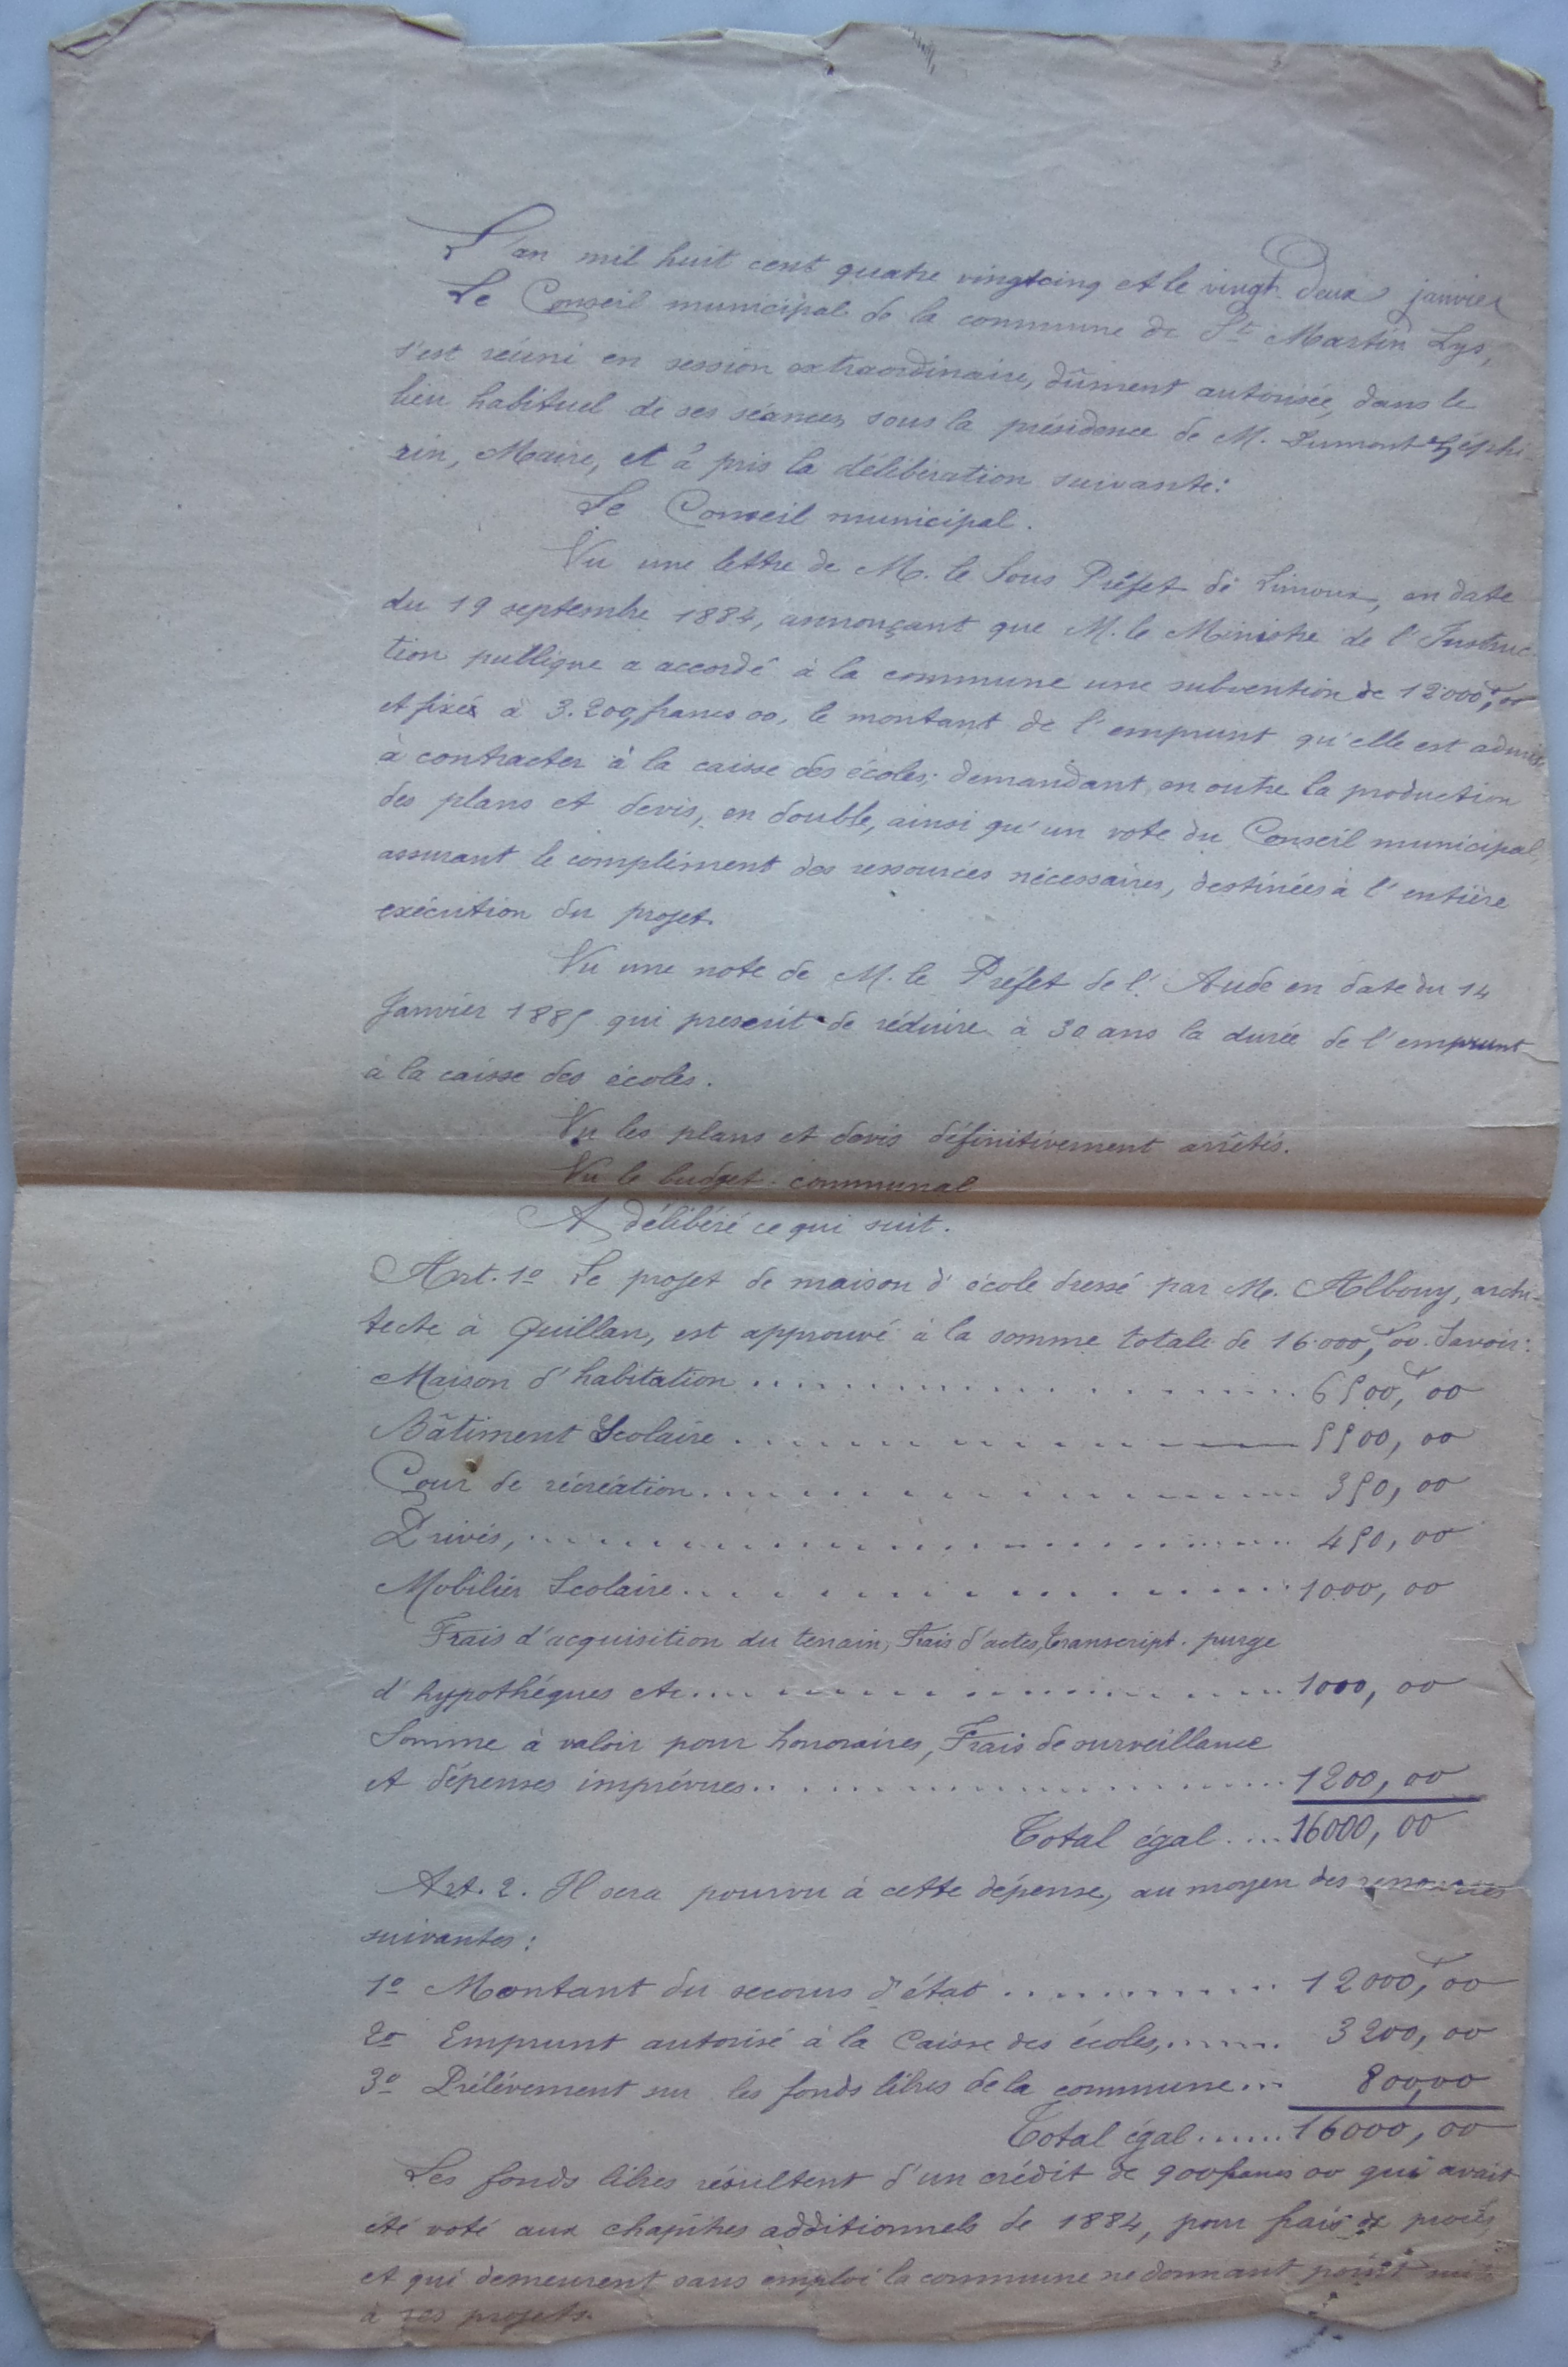 L'an mil huit cent quatre vingt cinq et le vingt-deux janvier
Le Conseil municipal de la commune de St Martin Lys,
s'est réuni en session extraordinaire, dûment autorisée, dans le
lieu habituel de ses séances, sous la présidence de M. Dumont Zéphi-
rin, Maire, et a pris la délibération suivante:
Le Conseil municipal.
Vu une lettre de M. le Sous Préfet de Limoux, en date
du 19 septembre 1884, annonçant que M. le Ministre de l'Instruc-
tion publique a accordé à la commune une subvention de 12000f,00
et fixée à 3.200, francs 00, le montant de l'emprunt qu'elle est admise
à contracter à la caisse des écoles; demandant, en outre la production
des plans et devis, en double, ainsi qu'un vote du Conseil municipal,
assurant le complément des ressources nécessaires, destinées à l'entière
exécution du projet.
Vu une note de M. le Préfet de l'Aude en date du 14
Janvier 1885 qui prescrit de réduire à 30 ans la durée de l'emprunt
à la caisse des écoles.
Vu les plans et devis définitivement arrêtés.
Vu le budget communal
A délibéré ce qui suit.
Art. 1º Le projet de maison d'école dressé par M. Albouy, archi-
tecte à Quillan, est approuvé à la somme totale de 16.000f,00. Savoir:
Maison d'habitation ............ 6500f,00
Bâtiment Scolaire ............ 5500,00
Cour de récréation ............ 350,00
Privés, ............ 450,00
Mobilier Scolaire ............ 1000,00
Frais d'acquisition du terrain, Frais d'actes, transcript. purge
d'hypothéques etc ............ 1000,00
Somme à valoir pour honoraires, Frais de surveillance
et dépenses imprévues ............ 1200,00
Total égal .... 16000,00
Art. 2. Il sera pourvu à cette dépense, au moyen des ressources
suivantes:
1º Montant du secours d'état ............ 12000f,00
2º Emprunt autorisé à la Caisse des écoles, ...... 3200,00
3º Prélèvement sur les fonds libres de la commune ... 800,00
Total égal ...... 16000,00
Les fonds libres résultent d'un crédit de 900 francs 00 qui avait
été voté aux chapitres additionnels de 1884, pour frais de procès
et qui demeurent sans emploi la commune ne donnant point suite
à ses projets.